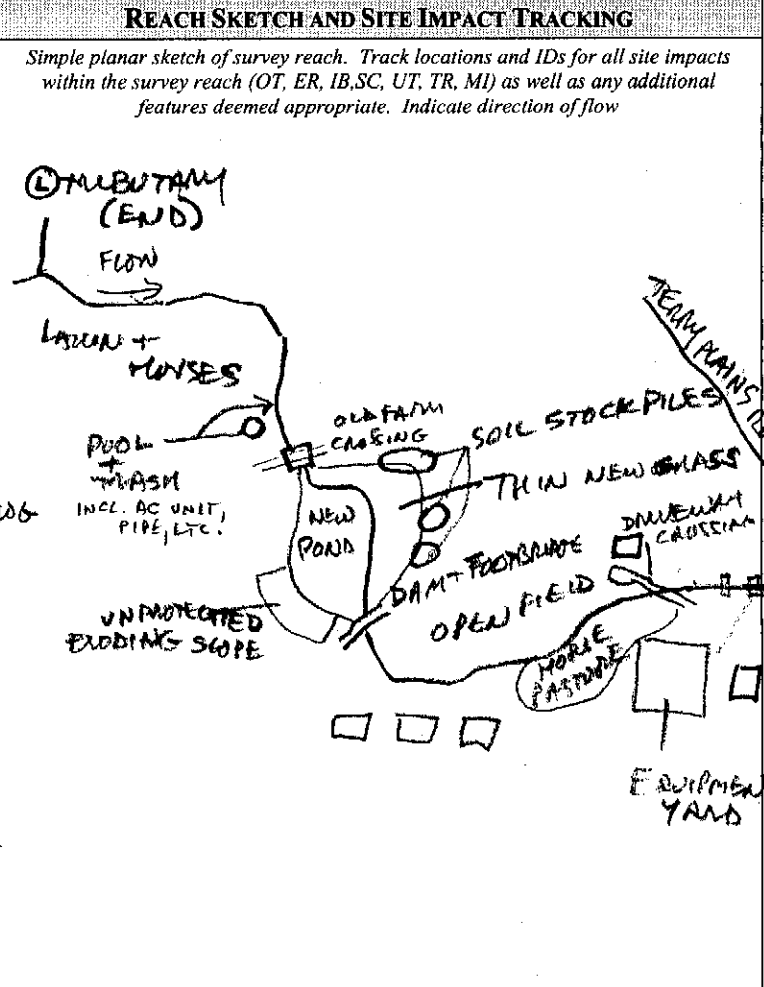 REACH SKETCH AND SITE IMPACT TRACKING
Simple planar sketch of survey reach. Track locations and IDs for all site impacts
within the survey reach (OT, ER, IB,SC, UT, TR, MI) as well as any additional
features deemed appropriate. Indicate direction of flow
Ⓛ TRIBUTARY
(END)
FLOW
LAWN +
HOUSES
TERRY PLAINS
POOL
+
TRASH
INCL. AC UNIT,
PIPE, ETC.
OLD FARM
CROSSING
SOIL STOCKPILES
THIN NEW GRASS
NEW
POND
DRIVEWAY
CROSSING
DAM + FOOTBRIDGE
OPEN FIELD
UNPROTECTED
ERODING SLOPE
HORSE
PASTURE
EQUIPMEN
YARD